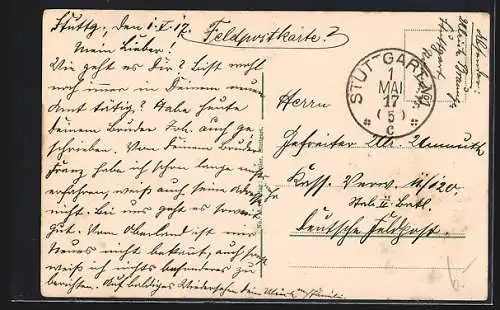 Stuttg., den 1.V.17.
Feldpostkarte.
Mein Lieber!
Wie geht es Dir? Bist wohl
noch immer in Deinem neuen
Amt tätig? Habe heute
Deinem Bruder Joh. auch ge-
schrieben. Von Deinem Bruder
Franz habe ich schon lange nichts
erfahren, weiß auch seine Adresse
nicht. Bei uns geht es soweit
gut. Vom Oberland ist mir
Neues nicht bekannt, auch sonst
weiß ich nichts besonderes zu
berichten. Auf baldiges Wiedersehen Dein
STUTTGART
1
MAI
17
(5)
C
Herrn
Gefreiter
Kass. Verw.
II. Batl.
Deutsche Feldpost.